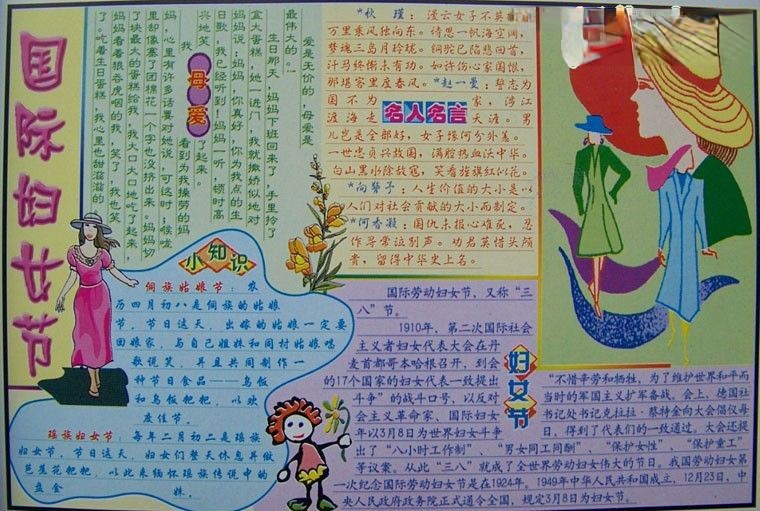 国际妇女节
爱是无价的，母爱是
最伟大的。
生日那天，妈妈下班回来了，手里拎了
盒大蛋糕，她一进门，我就撒娇似地对
妈妈说：妈妈，你真好，你为我点的生
日歌，我已经听到！妈妈一听，顿时高
兴地笑了起来。
母爱
我看到为我操劳的妈
妈，心里有许多话要对她说，可这时，喉咙
里却像塞了团棉花一个字也没挤出来。妈妈切
了块最大的蛋糕给我，我大口大口地吃了起来，
妈妈看着狼吞虎咽的我，笑了，我也笑
了。吃着生日蛋糕，我心里也甜滋滋的
*秋 瑾：漫云女子不英
万里乘风独向东。诗思一帆海空阔，
梦魂三岛月玲珑。铜驼已陷悲回首，
汗马终惭未有功。如许伤心家国恨，
那堪客里度春风。*赵一曼：誓志为
国不为家，涉江
渡海走天涯。男
名人名言
儿岂是全都好，女子缘何分外差。
一世忠贞兴故国，满腔热血沃中华。
白山黑水除敌寇，笑看旌旗红似花。
*向警予：人生价值的大小是以
人们对社会贡献的大小而制定。
*何香凝：国仇未报心难死，忍
作寻常泣别声。劝君莫惜头颅
贵，留得中华史上名。
小知识
侗族姑娘节：农
历四月初八是侗族的姑娘
节，节日这天，出嫁的姑娘一定要
回娘家，与自己姐妹和同村姑娘唱
歌说笑，并且共同制作一
种节日食品——乌饭
和乌饭粑粑，以欢
度佳节。
瑶族妇女节：每年二月初二是瑶族
妇女节，节日这天，妇女们整天休息并做
芭蕉花粑粑，以此来缅怀瑶族传说中的
盘金妹。
国际劳动妇女节，又称“三
八”节。
1910年，第二次国际社会
主义者妇女代表大会在丹
麦首都哥本哈根召开，到会
的17个国家的妇女代表一致提出
斗争”的战斗口号，以反对
会主义革命家、国际妇女
年以3月8日为世界妇女斗争
妇女节
“不惜辛劳和牺牲，为了维护世界和平而
当时的军国主义扩军备战。会上，德国社
书记处书记克拉拉·蔡特金向大会倡仪每
日，得到了代表们的一致通过。大会还提
出了“八小时工作制”、“男女同工同酬”、“保护女性”、“保护童工”
等议案。从此“三八”就成了全世界劳动妇女伟大的节日。我国劳动妇女第
一次纪念国际劳动妇女节是在1924年。1949年中华人民共和国成立，12月23日，中
央人民政府政务院正式通令全国，规定3月8日为妇女节。